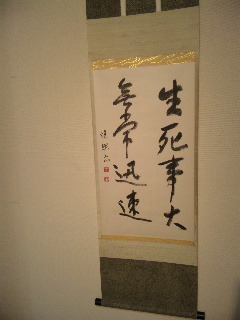 生死事大
無常迅速